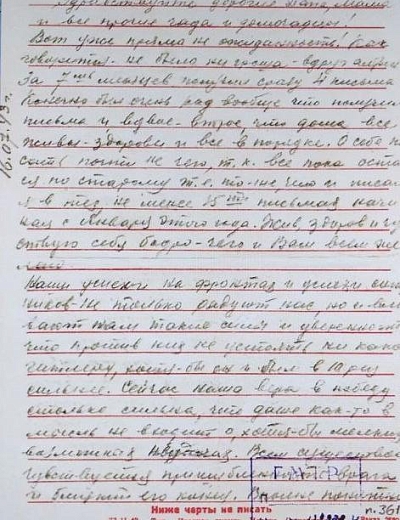 Здравствуйте дорогие папа, мама
и все прочие чада и домочадцы!
Вот уже прямо не ожиданность! Как
говорится - не было ни гроша - вдруг алтын
За 7 месяцев получил сразу 4 письма
Конечно был очень рад вообще что получил
письма и вдвое - втрое, что дома все
живы - здоровы и все в порядке. О себе пи
сать почти не чего, т. к. все пока оста
по старому т. е. то-же что и писал
я в не менее 15 письмах начи
ная с января этого года. Жив, здоров и чу
ствую себя бодро - чего и Вам всем же
лаю.
Наши успехи на фронтах и успехи союз
ников - не только радуют нас, но и
вают нам такие силы и уверенность
что против них не устоять ни како
Гитлеру, хотя-бы он и был в 10 раз
сильнее. Сейчас наша вера в победу
столько сильна, что даже как-то в
мысль не входит о, хотя-бы
возможных неудачах. Всем существом
чувствуется врага
и его конец. Вполне понятно
16.07.43 г.
ГАРФ
Ниже черты не писать
п. 361